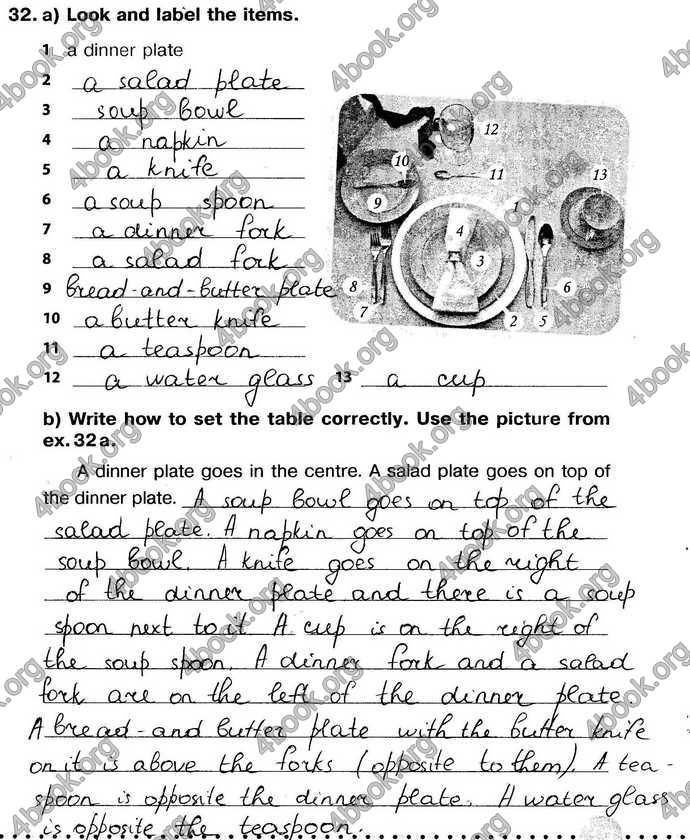 32. a) Look and label the items.
1 a dinner plate
2 a salad plate
3 soup bowl
4 a napkin
5 a knife
6 a soup spoon
7 a dinner fork
8 a salad fork
9 bread-and-butter plate
10 a butter knife
11 a teaspoon
12 a water glass 13 a cup
12
10
11
13
9
1
4
3
8
6
7
2
5
b) Write how to set the table correctly. Use the picture from
ex. 32 a.
A dinner plate goes in the centre. A salad plate goes on top of
the dinner plate. A soup bowl goes on top of the
salad plate. A napkin goes on top of the
soup bowl. A knife goes on the right
of the dinner plate and there is a soup
spoon next to it A cup is on the right of
the soup spoon. A dinner fork and a salad
fork are on the left of the dinner plate.
A bread-and butter plate with the butter knife
on it is above the forks (opposite to them). A tea-
spoon is opposite the dinner plate. A water glass
is opposite the teaspoon.
4book.org